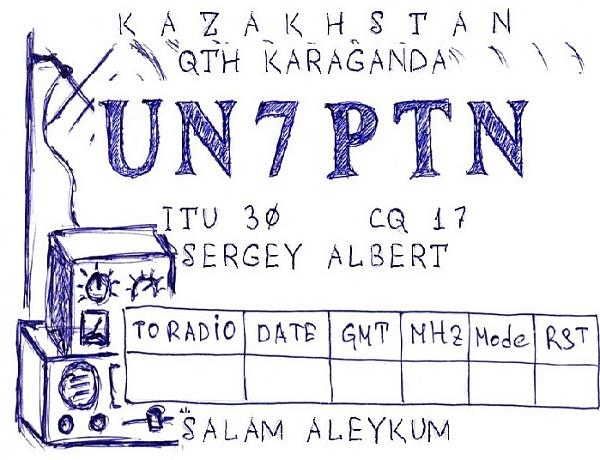 KAZAKHSTAN
QTH KARAGANDA
UN7PTN
ITU 30 CQ 17
SERGEY ALBERT
TO RADIO DATE GMT MHZ Mode RST
SALAM ALEYKUM